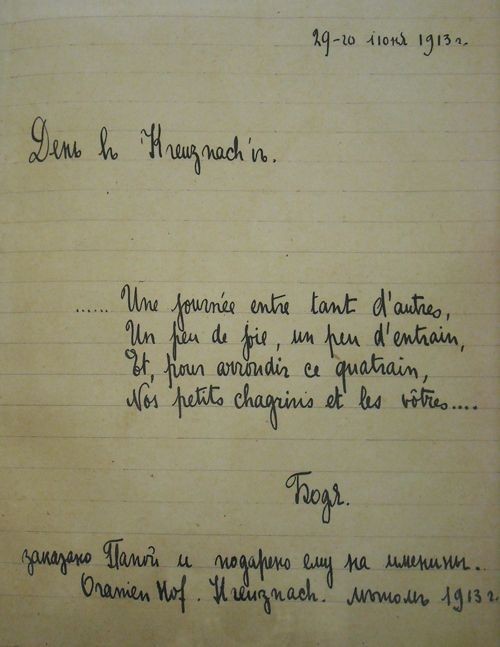 29-го iюня 1913 г.
День въ Kreuznach'ѣ.
...... Une journée entre tant d'autres,
Un peu de joie, un peu d'entrain,
Et, pour arrondir ce quatrain,
Nos petits chagrins et les vôtres....
Бодя.
заказано Папой и подарено ему на именины.
Oranien Hof. Kreuznach. лѣтомъ 1913 г.